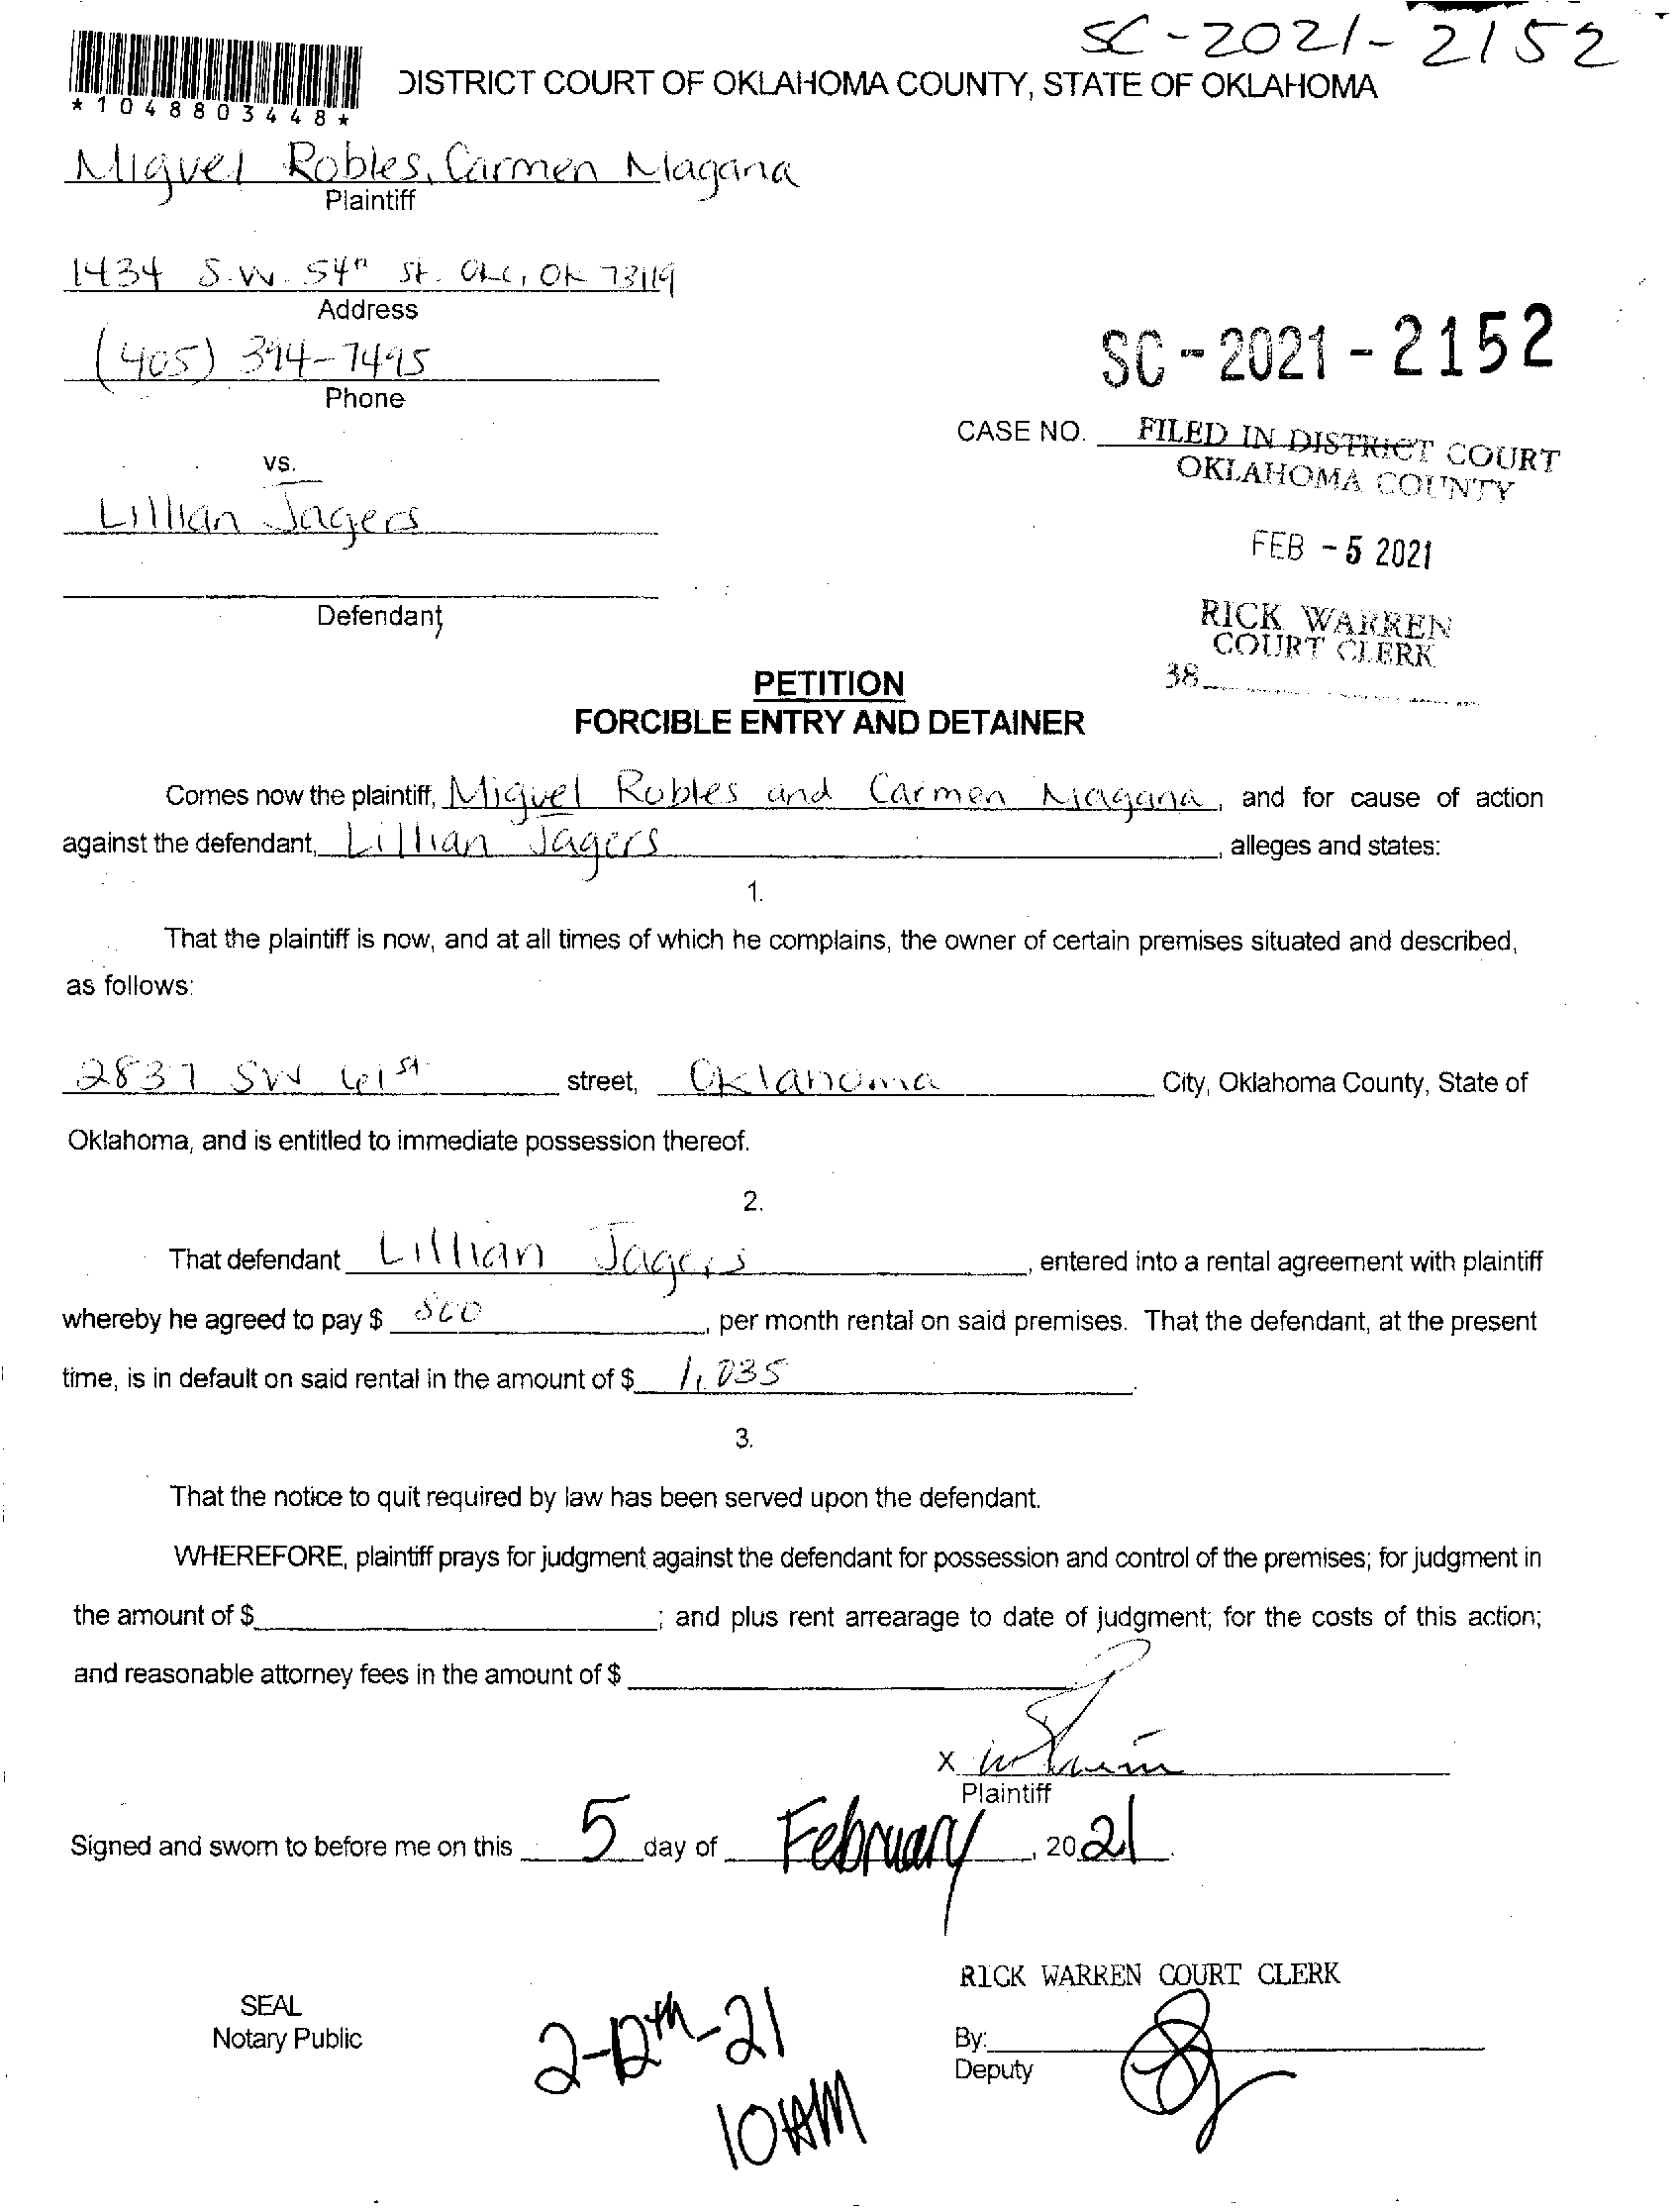 SC-2021-2152
*1048803448*
DISTRICT COURT OF OKLAHOMA COUNTY, STATE OF OKLAHOMA
Miguel Robles, Carmen Magana
Plaintiff
1434 S.W. 54th St. OKC, OK 73119
Address
(405) 394-7495
Phone
SC-2021-2152
CASE NO.
FILED IN DISTRICT COURT
OKLAHOMA COUNTY
vs.
Lillian Jagers
FEB -5 2021
Defendant
RICK WARREN
COURT CLERK
38
PETITION
FORCIBLE ENTRY AND DETAINER
Comes now the plaintiff, Miguel Robles and Carmen Magana, and for cause of action
against the defendant, Lillian Jagers, alleges and states:
1.
That the plaintiff is now, and at all times of which he complains, the owner of certain premises situated and described,
as follows:
2837 SW 61st street, Oklahoma City, Oklahoma County, State of
Oklahoma, and is entitled to immediate possession thereof.
2.
That defendant Lillian Jagers, entered into a rental agreement with plaintiff
whereby he agreed to pay $ 800, per month rental on said premises. That the defendant, at the present
time, is in default on said rental in the amount of $ 1,035.
3.
That the notice to quit required by law has been served upon the defendant.
WHEREFORE, plaintiff prays for judgment against the defendant for possession and control of the premises; for judgment in
the amount of $ ; and plus rent arrearage to date of judgment; for the costs of this action;
and reasonable attorney fees in the amount of $
X
Plaintiff
Signed and sworn to before me on this 5 day of February, 2021.
RICK WARREN COURT CLERK
SEAL
Notary Public
By:
Deputy
2-12th-21
10AM